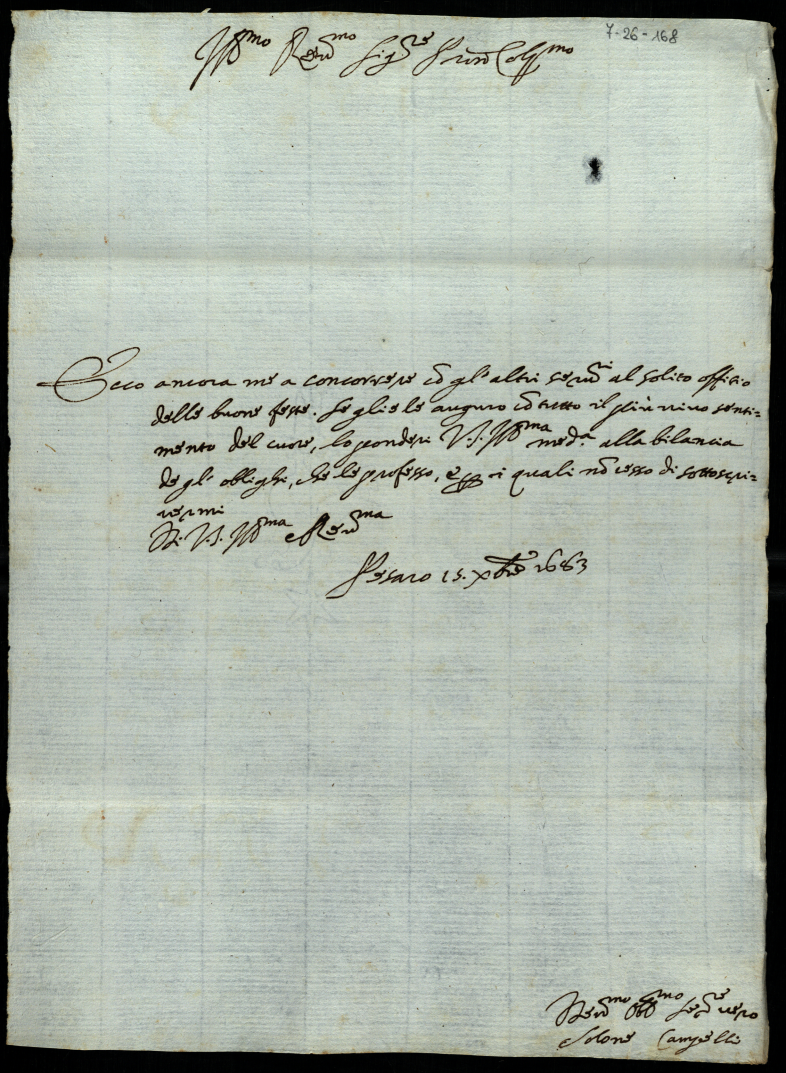 7-26-168
Ill.mo Reu.mo Sig.re Pron Col.mo
Ecco ancora me a concorrere cõ gl'altri seru.ri al solito offitio
delle buone feste. Se glie le auguro cõ tutto il più uiuo senti=
mento del cuore, lo ponderi V.S. Ill.ma med.a alla bilancia
de gl'oblighi, che le professo, e p i quali nõ cesso di sottoscri=
uermi
Di V.S. Ill.ma e Reu.ma
Pesaro 15. Xbre 1663
Deu.mo Obb.mo Se.re uero
Solone Campelli